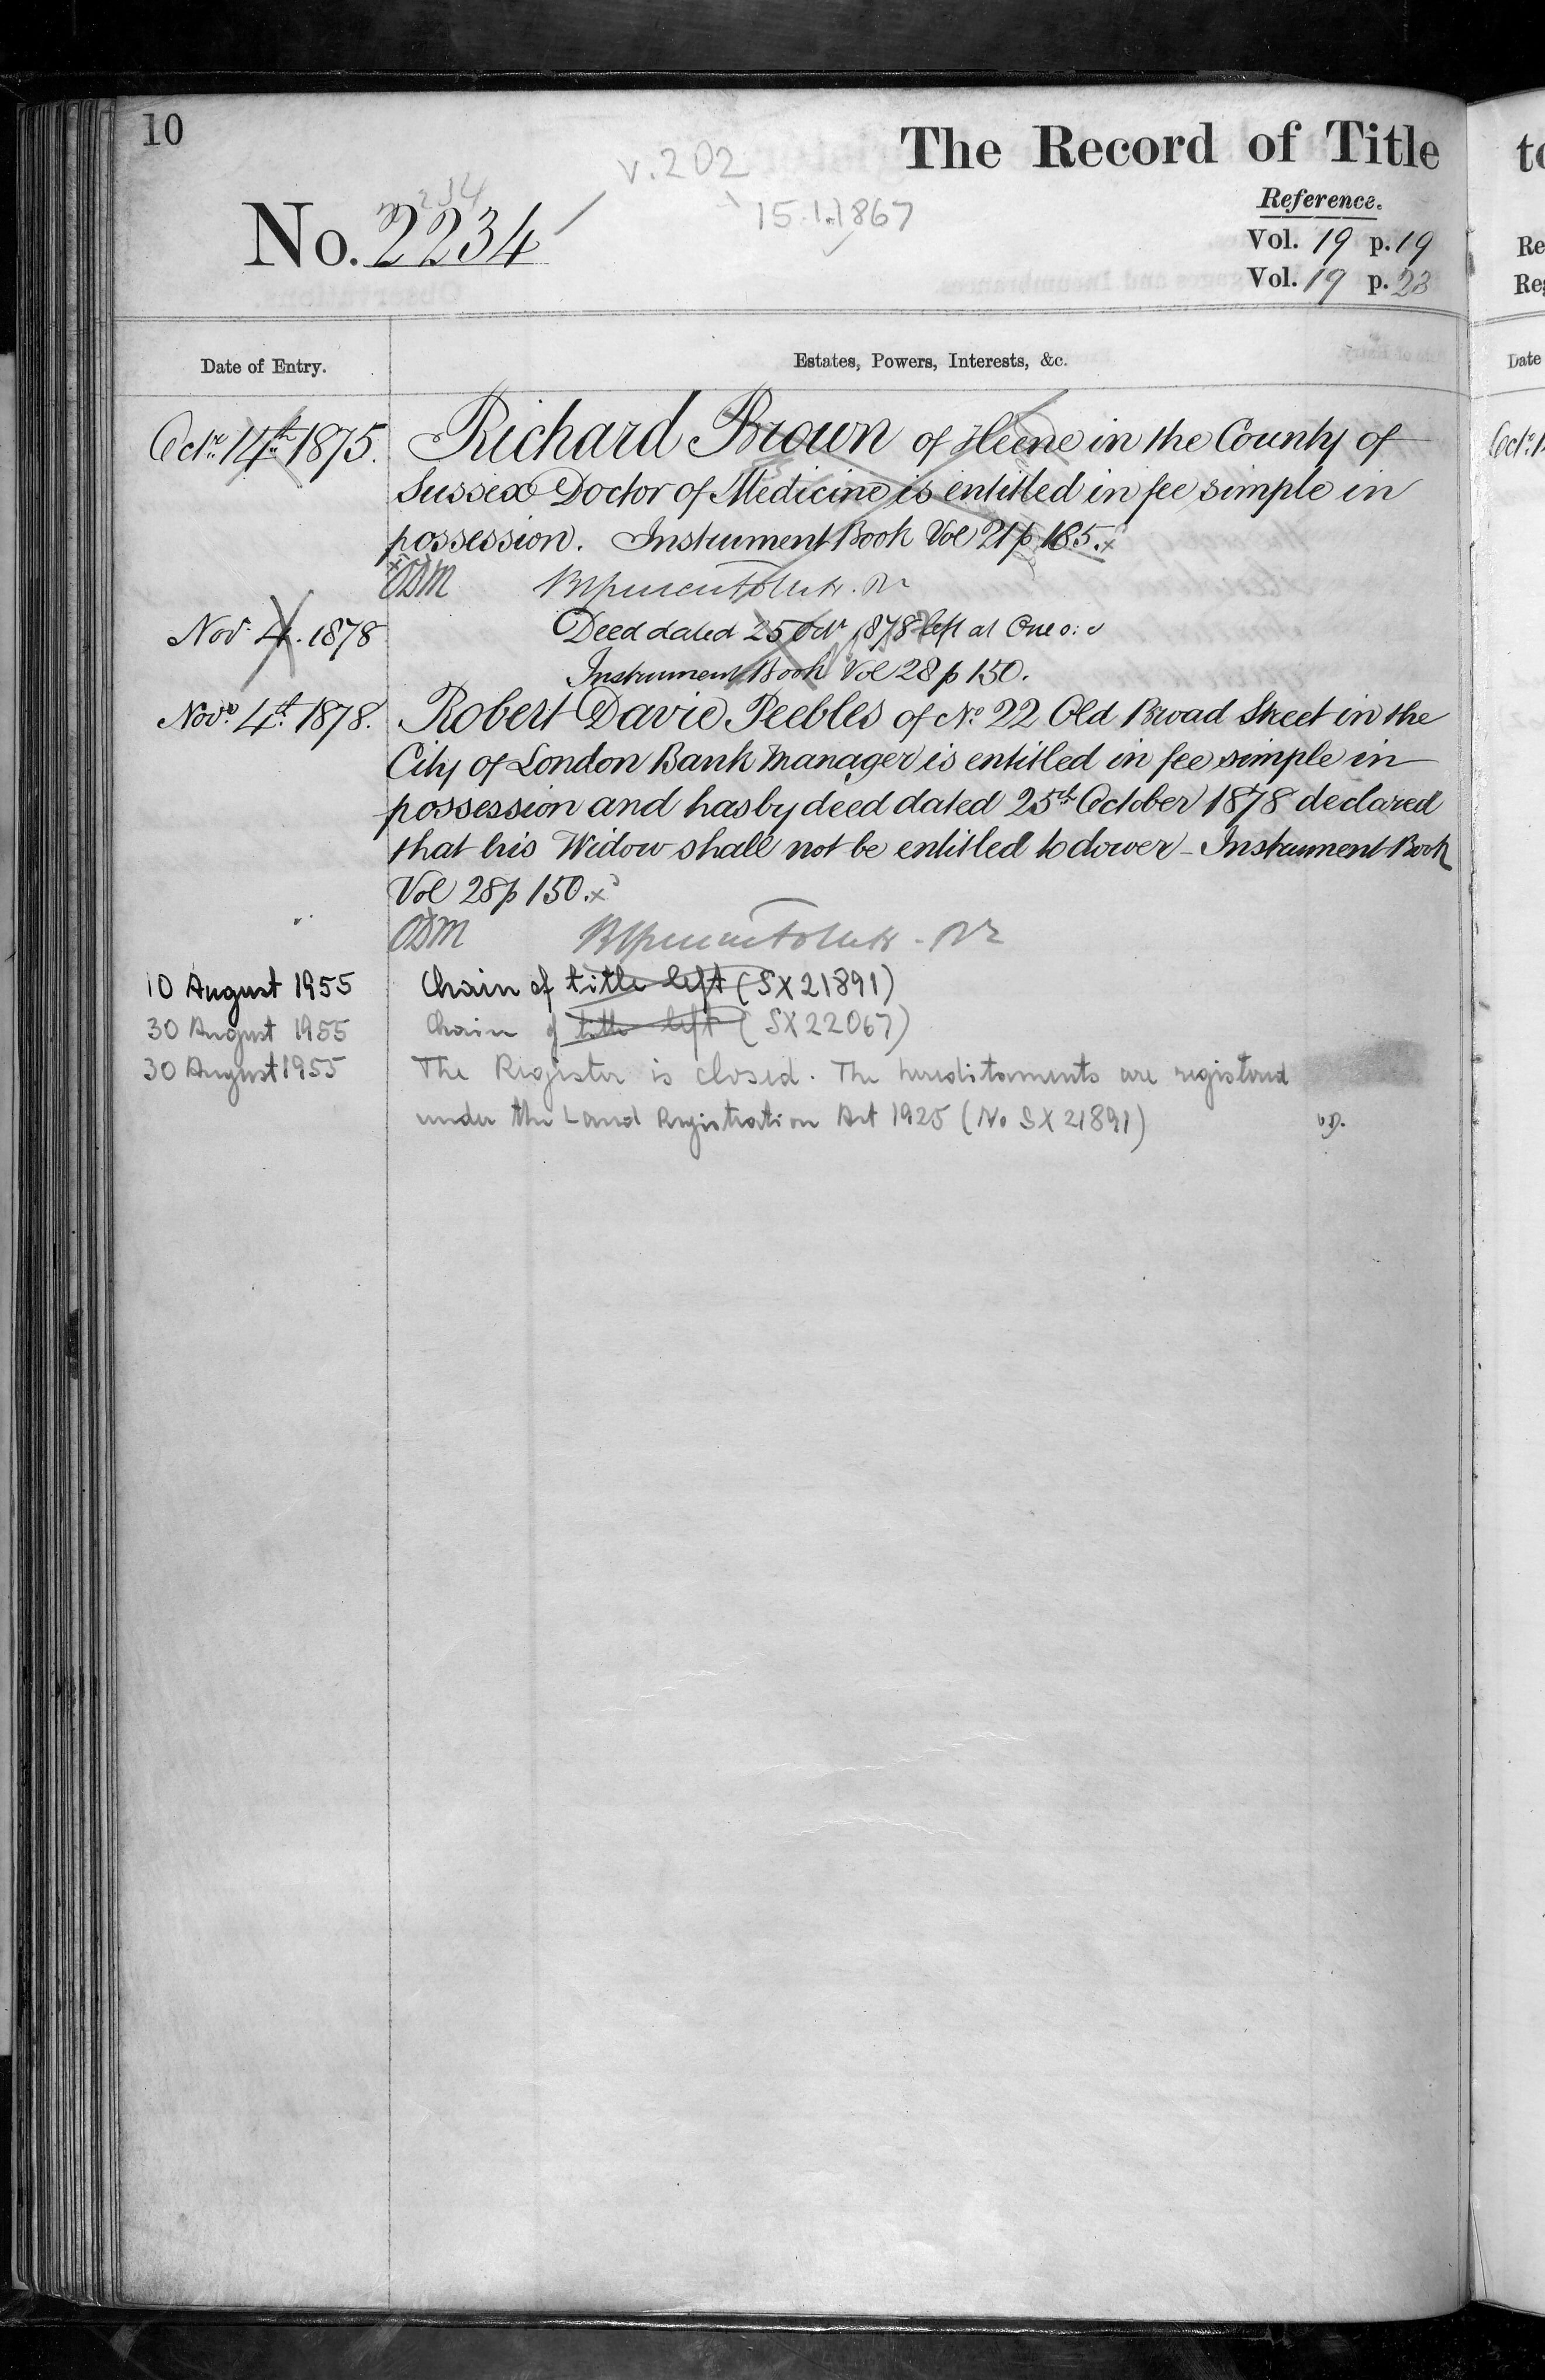 10
The Record of Title
v. 202
234
15.1.1867
No. 2234
Reference.
Vol. 19 p. 19
Vol. 19 p. 23
Date of Entry.
Estates, Powers, Interests, &c.
Octr. 14th 1875.
Richard Brown of Heene in the County of
Sussex Doctor of Medicine is entitled in fee simple in
possession. Instrument Book Vol 21 p 185.
ODM
Nov 4. 1878
Deed dated 25 Octr 1878 left at One o:c
Instrument Book Vol 28 p 150.
Novr. 4th. 1878.
Robert Davie Peebles of No. 22 Old Broad Street in the
City of London Bank Manager is entitled in fee simple in
possession and has by deed dated 25th October 1878 declared
that his Widow shall not be entitled to dower - Instrument Book
Vol 28 p 150.
ODM
10 August 1955
Chain of title left (SX21891)
30 August 1955
Chain of title left (SX22067)
30 August 1955
The Register is closed. The hereditaments are registered
under the Land Registration Act 1925 (No SX21891)
to
Re
Reg
Date
Octr. 1